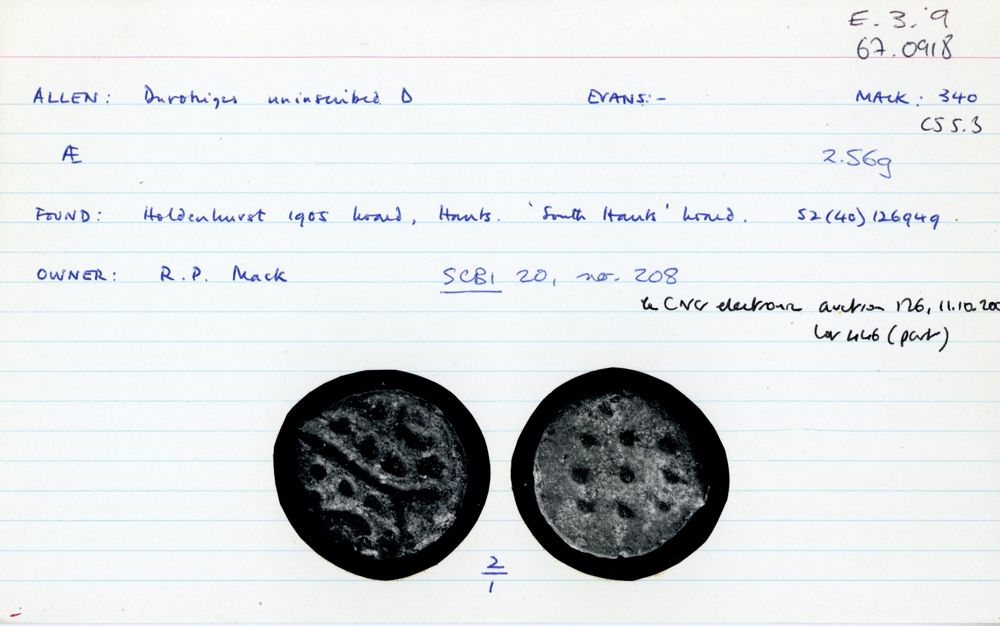 E.3.9
67.0918
ALLEN: Durotriges uninscribed D EVANS:- MACK: 340
CSS.3
Æ 2.56g
FOUND: Holdenhurst 1905 hoard, Hants. 'South Hants' hoard. SZ(40)126949.
OWNER: R.P. Mack SCBI 20, no. 208
CNG electronic auction 126, 11.10.200
Lot 446 (part)
2
1